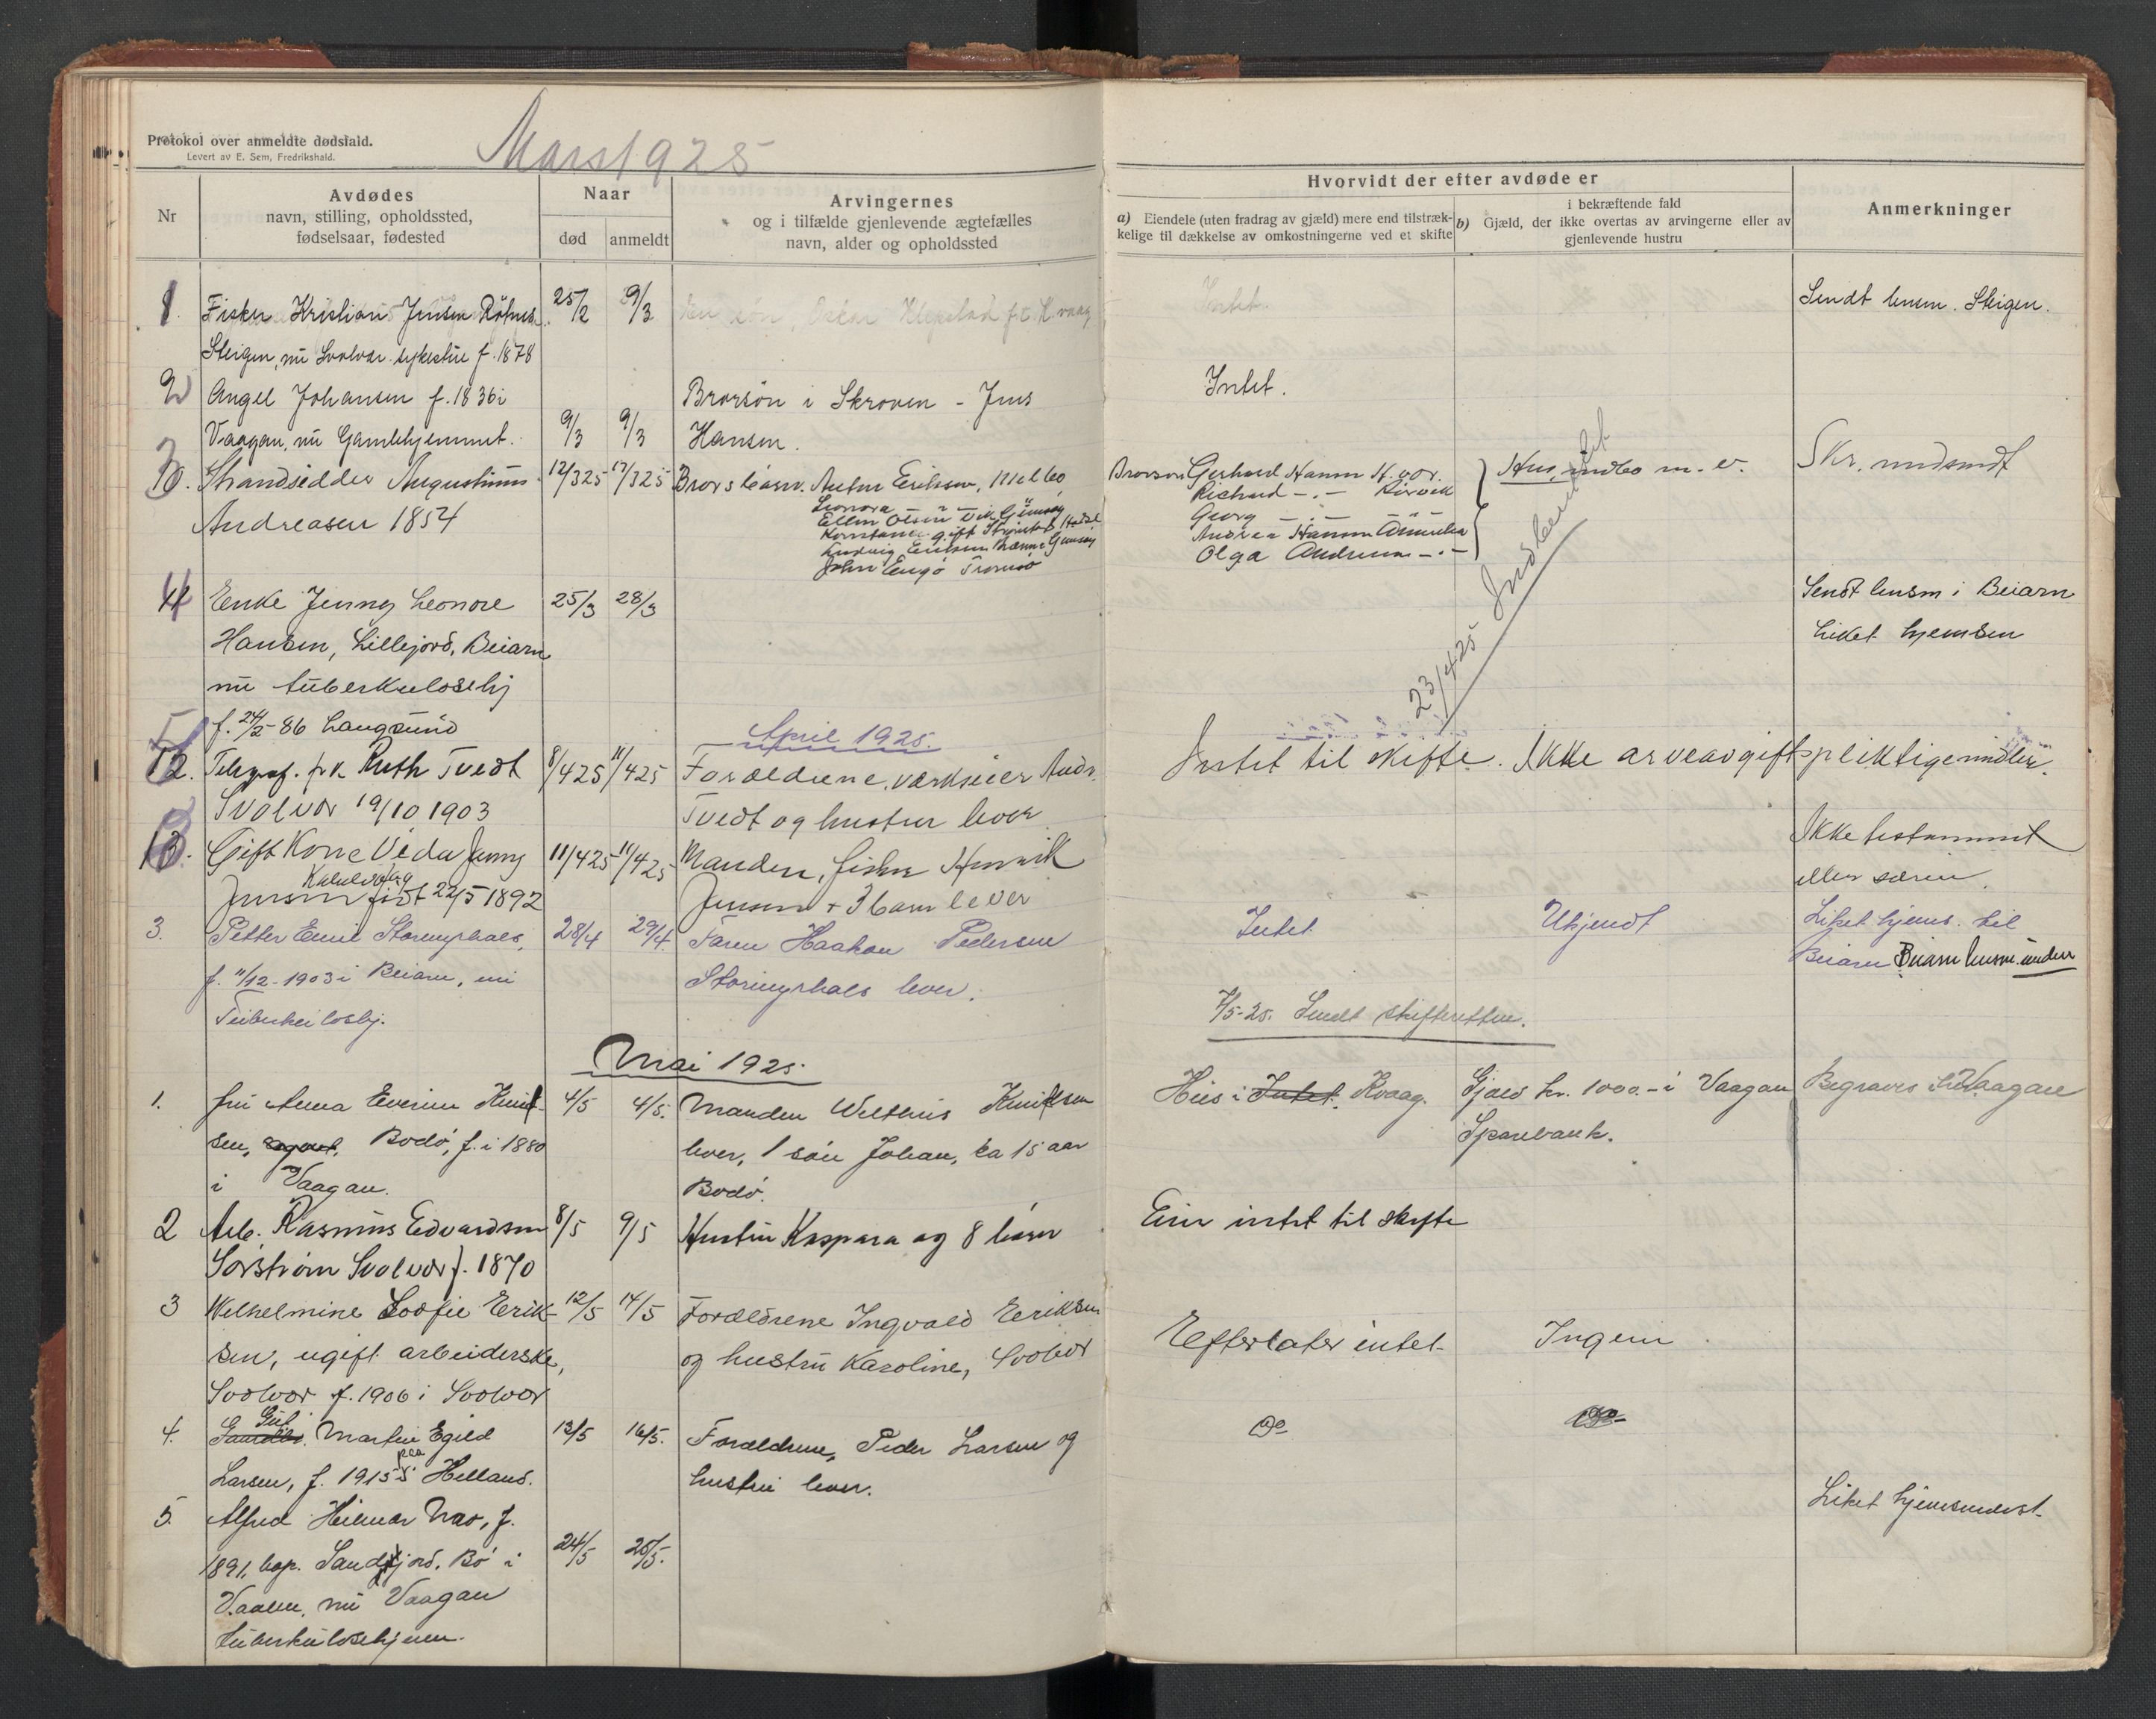 Protokol over anmeldte dødsfald.
Levert av E. Sem, Fredrikshald.
Mars 1925
Nr
Avdødes
navn, stilling, opholdssted,
fødselsaar, fødested
Naar
død
anmeldt
Arvingernes
og i tilfælde gjenlevende ægtefælles
navn, alder og opholdssted
Hvorvidt der efter avdøde er
a) Eiendele (uten fradrag av gjæld) mere end tilstræk-
kelige til dækkelse av omkostningerne ved et skifte
i bekræftende fald
b) Gjæld, der ikke overtas av arvingerne eller av
gjenlevende hustru
Anmerkninger
1. Fisker Kristian Jensen 25/2 9/3 Intet. Sendt lensm. Steigen.
Steigen, nu Svolvær sykestue f. 1878
2 Angel Johansen f. 1836 i Brorsøn i Skroven - Jens Intet.
Vaagan, nu Gamlehjemmet. 9/3 9/3 Hansen.
3. Augustinus 12/3 25 17/3 25 Brors barn. Anton Eriksen, Brorson Gerhard Hamn Hus, indbo m.v. Skr. nedsendt
Andreasen 1854
Leonora
Ellen Olsen Vik Gimsøy
Konstanse gift
Ludvig Eriksen Gimsøy
John Engø Tromsø
Richard -"-
Georg -"-
Andrea Hamn
Olga Andreassen -"-
23/4 25 Indberettet
4 Enke Jenny Leonore 25/3 28/3 Sendt lensm i Beiarn
Hansen, Lillejord, Beiarn Liket hjemsen
nu tuberkulosehj
f. 24/2-86 Langsund
April 1925.
12. Telegraf. Ruth Tvedt 8/4 25 11/4 25 Forældrene, værkseier Andr. Intet til skifte. Ikke arveavgiftspliktige midler.
Svolvær 19/10 1903 Tvedt og hustru lever
13. Gift Kone Vida Jenny 11/4 25 11/4 25 Manden, fisker Henrik Ikke testamnt
Kabelvåg
Jensen født 22/5 1892 Jensen + 3 barn lever eller særeie.
3. Petter Emil Storingshals, 28/4 29/4. Faren Haakon Pedersen Intet Ukjendt Liket hjems. til
f. 11/12-1903 i Beiarn, nu Storingshals lever. Beiarn Beiarn lensm. underr
Tuberkuloshj.
7/5-25. Sendt skifteretten.
Mai 1925.
1. fru Anna Everine Knut- 4/5 4/5. Manden Knutsen Hus i Intet. Kvaag. Gjæld kr. 1000.- i Vaagan Begraves i Vaagan
sen, Bodø, f. i 1880 lever, 1 søn Johan, ca 15 aar Sparebank.
i Vaagan. Bodø.
2 Arb. Rasmus Edvardsen 8/5 9/5 Hustru Kaspara og 8 barn Eier intet til skifte
Sørstrøm Svolvær f. 1870
3 Wilhelmine Sofie Erik- 12/5 14/5 Forældrene Ingvald Eriksen Efterlater intet Ingen
sen, ugift arbeiderske, og hustru Karoline, Svolvær
Svolvær f. 1906 i Svolvær
Gut
4. Martin Egild 13/5 16/5. Forældrene, Peder Larsen og do do
Larsen, f. 1915 paa Helland. hustru lever.
5. Alfred Hilmar f. Liket hjemsendest
1891, bop. Sandfjord, Bø i 24/5 25/5.
V.aalen, nu Vaagan
tuberkulosehjem.